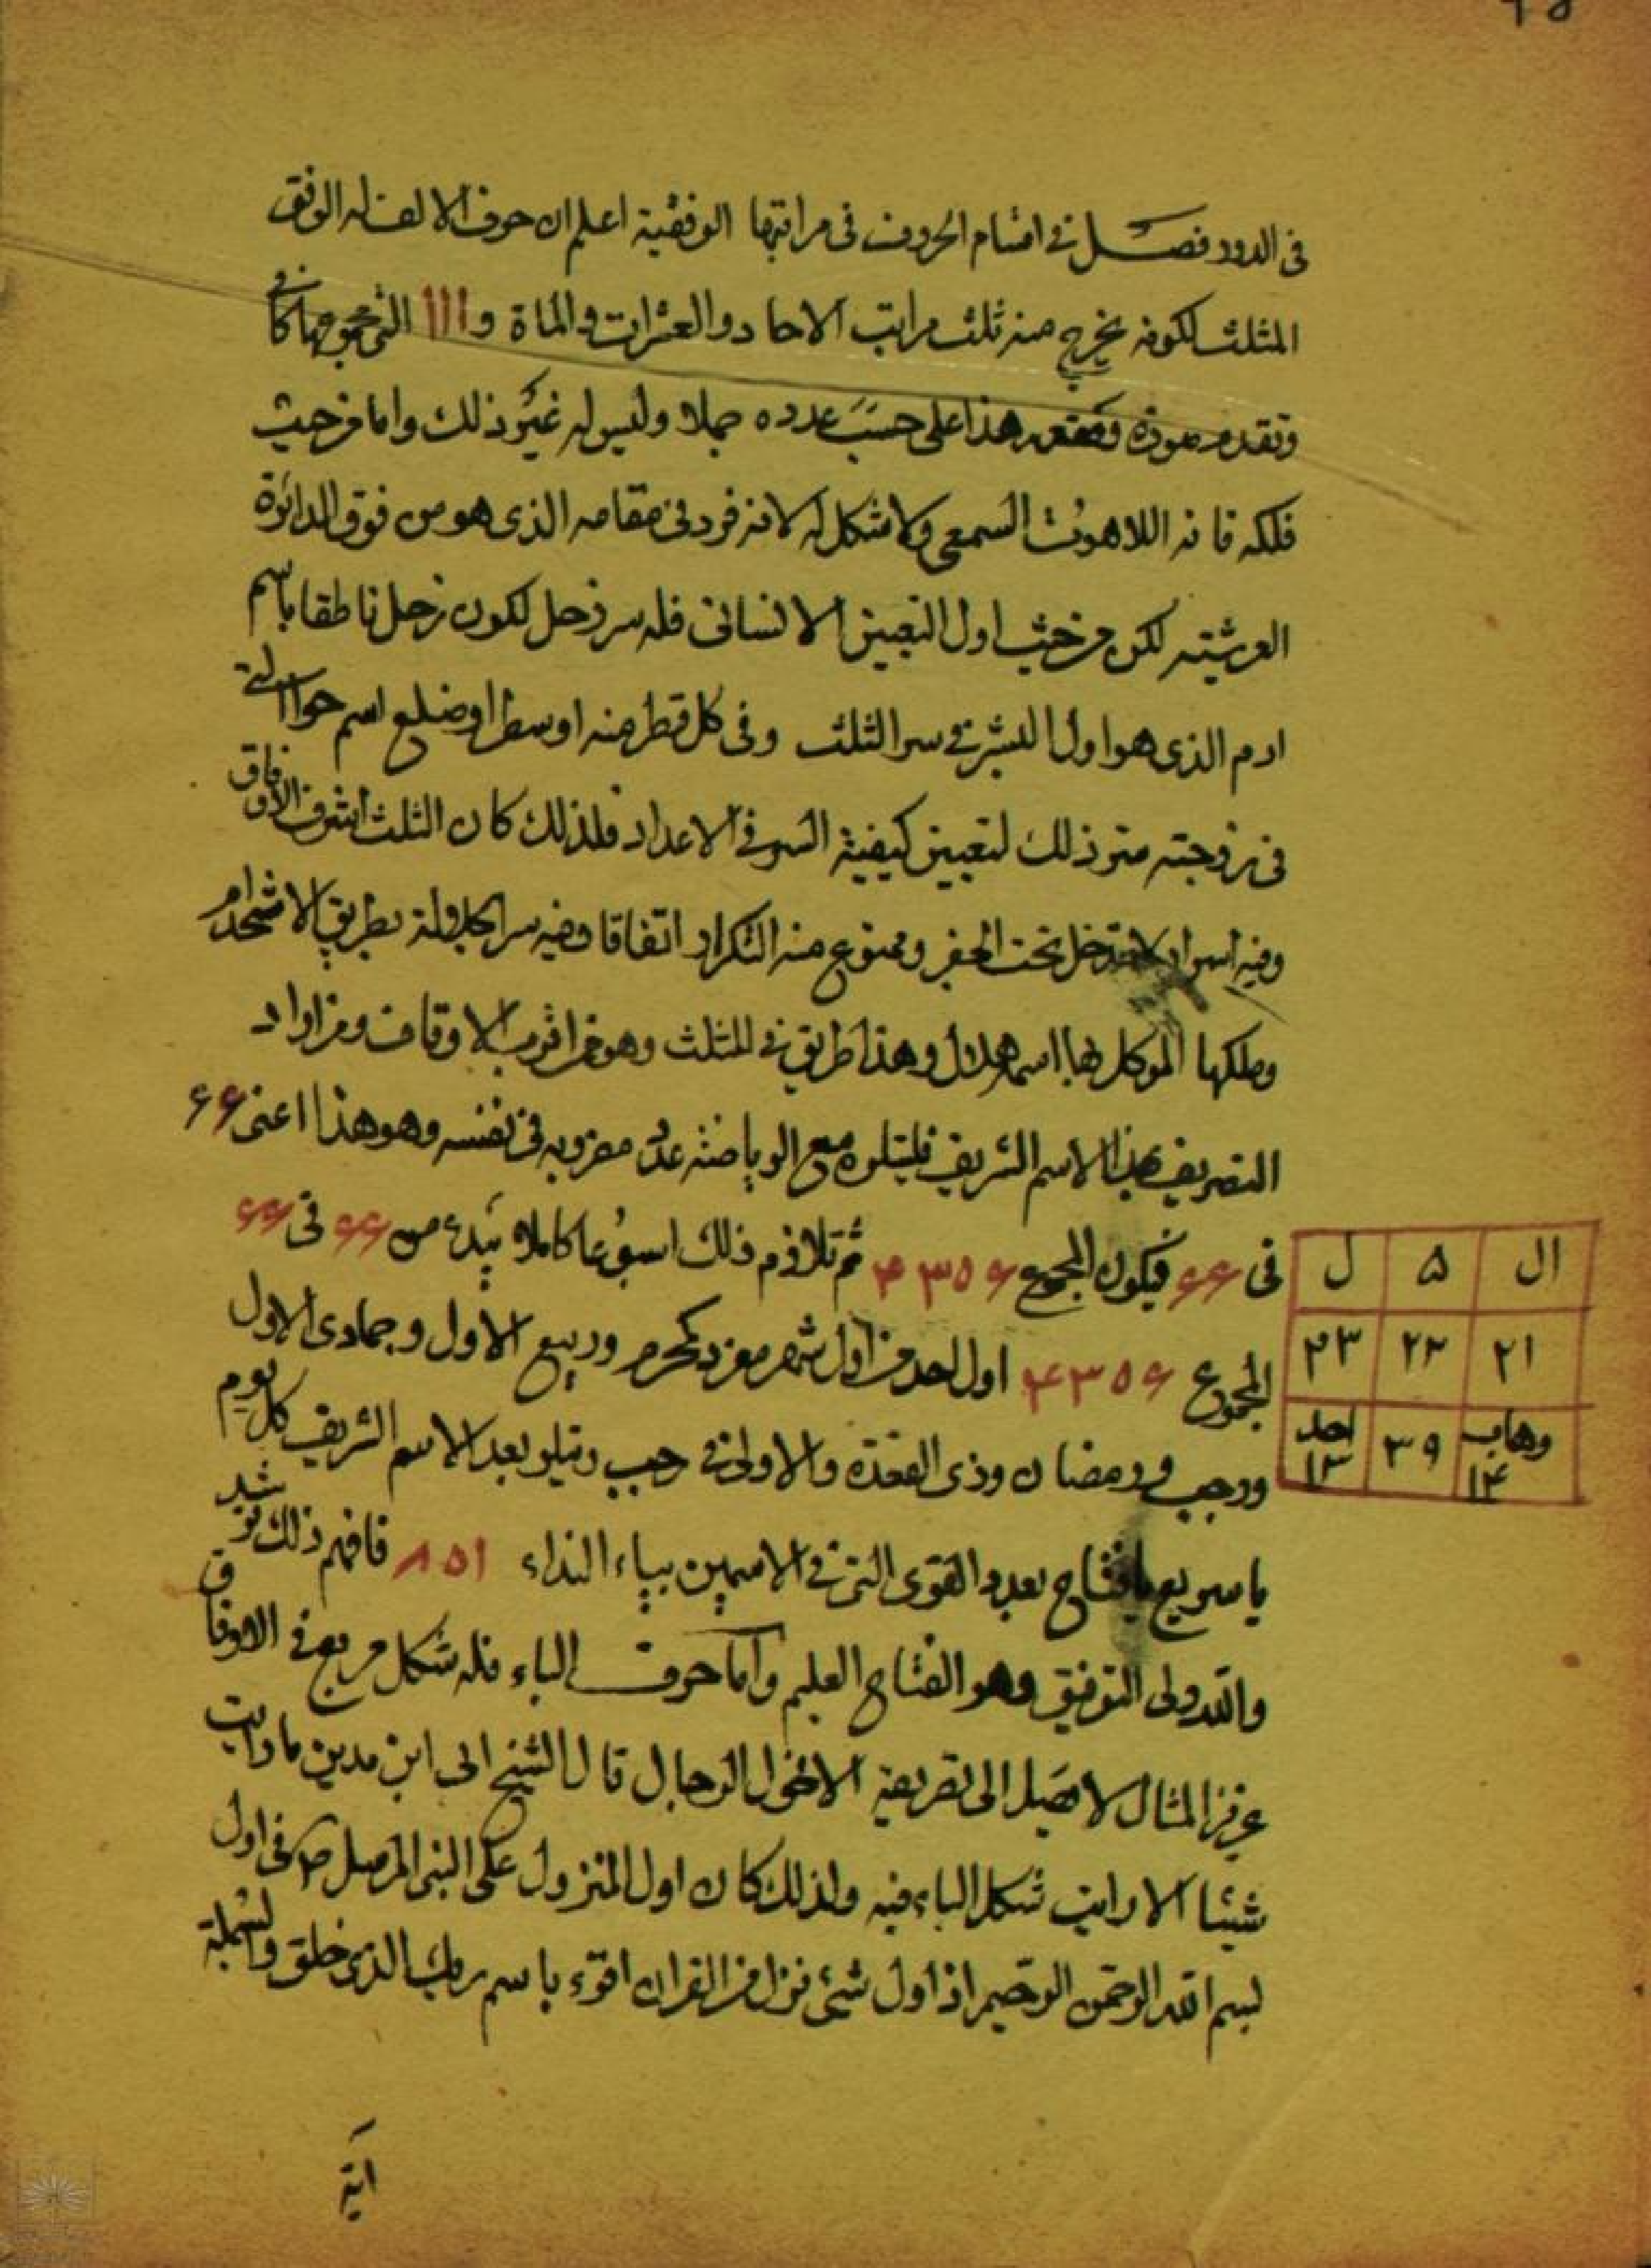 فى الدور فصل فى اقسام الحروف فى مراتبها الوفقية اعلم ان حرف الالف له الوفق
المثلث لكونه يخرج منه ثلث مراتب الاحاد والعشرات والماة و ااا التى مجموعها كافى
وتقدم هذا على حسب عدده جملا وليس له غير ذلك واما من حيث
فلكه فانه اللاهوت السمعى ولا شكل له لانه فرد فى مقامه الذى هو من فوق الدائرة
العرشيته لكن من حيث اول التعيين الانسانى فله سر زحل لكون زحل ناطقا باسم
ادم الذى هو اول البشر فى سر الثلث وفى كل قطر منه او سطر او ضلع اسم حوا التى
فى زوجته ذلك لتعيين كيفية السر فى الاعداد فلذلك كان الثلث اشرف الاوفاق
وفيه اسرار لا تدخل تحت الحفر وممنوع منه التكرار اتفاقا وفيه سر الجلالة بطريق
وملكها الموكل بها اسمه هلال وهذا طريق فى المثلث وهو من اقرب الاوقاف ومن اراد
التصريف بهذا الاسم الشريف فليتله مع الرياضة عدد مضروبه فى نفسه وهو هذا اعنى ۶۶
فى ۶۶ فيكون المجموع ۴۳۵۶ ثم تلازم ذلك اسبوعا كاملا تبدء من ۶۶ فى ۶۶
المجموع ۴۳۵۶ اول احد من اول شهر مفرد كمحرم وربيع الاول وجمادى الاول
ورجب ورمضان وذى القعدة والاولى فى رجب وتتلو بعد الاسم الشريف كل يوم
يا سريع يا فتاح بعدد القوى التى فى الاسمين بياء النداء ۸۵۱ فافهم ذلك ترشد
والله ولى التوفيق وهو الفتاح العليم واما حرف الباء فله شكل مربع فى الاوفاق
عزيز المثال لا يصل الى تصريفه الا فحول الرجال قال الشيخ ابى ابن مدين ما رايت
شيئا الا رايت شكل الباء فيه ولذلك كان اول المنزول على النبى المرسل ص فى اول
بسم الله الرحمن الرحيم اذ اول شئ نزل من القران اقرء باسم ربك الذى خلق والبسملة
اية
ال ۵ ل
۲۱ ۲۲ ۲۳
وهاب ۱۴ ۳۹ احد ۱۳